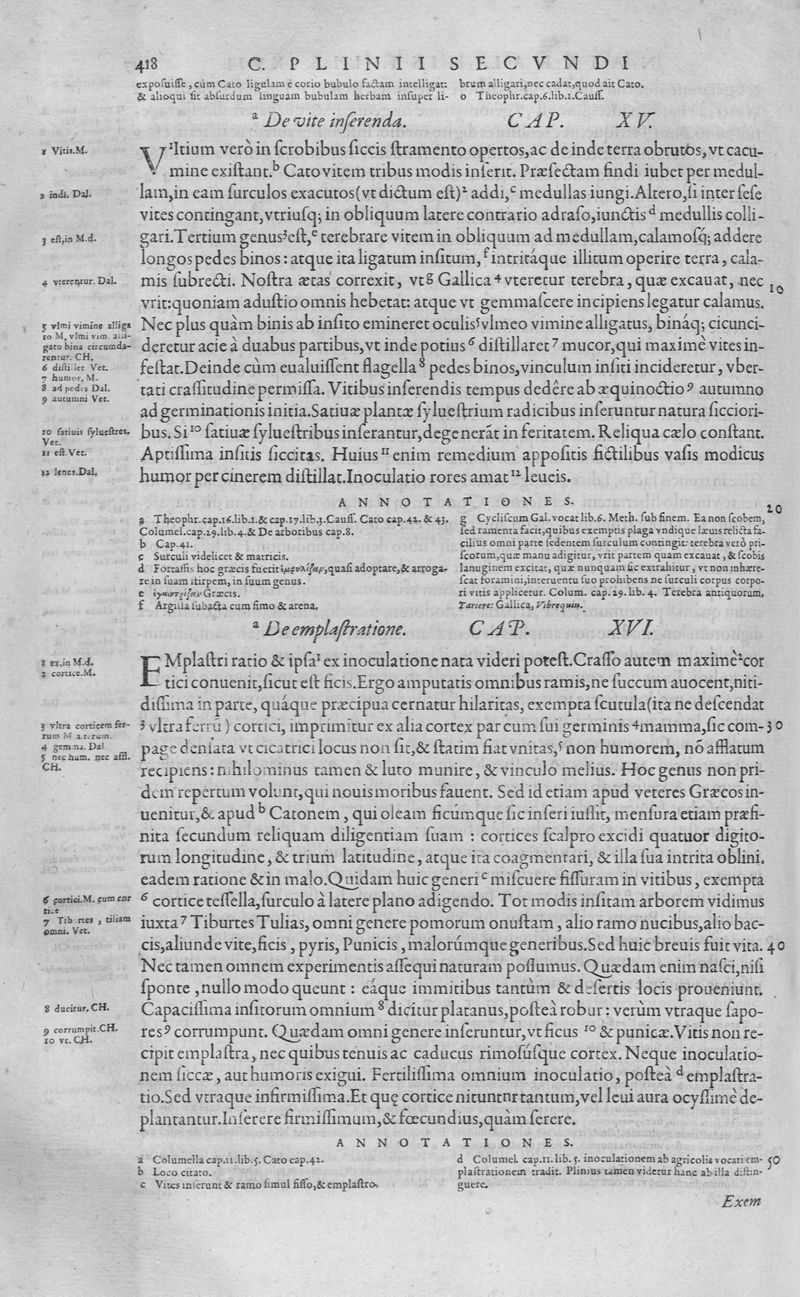 418 C. PLINII SECVNDI
exposuisse, cùm Cato ligulam è corio bubulo factam intelligat:
& alioqui sit absurdum linguam bubulam herbam insuper li-
brum alligari, nec cadat, quod ait Cato.
o Theophr.cap.6.lib.1.Causs.
ª De vite inserenda. CAP. XV.
1 Vitis.M.
2 indi. Dal.
3 est, in M.d.
4 vterentur. Dal.
5 vlmi vimine alliga
to M, vlmi vim. alli-
gato bina circumda-
rentur. CH.
6 distillet Vet.
7 humor, M.
8 ad pedes Dal.
9 autumni Vet.
10 satiuis syluestres.
Vet.
11 est. Vet.
12 lenes. Dal.
V¹Itium verò in scrobibus siccis stramento opertos, ac deinde terra obrutos, vt cacu-
mine existant.ᵇ Cato vitem tribus modis inserit. Præsectam findi iubet per medul-
lam, in eam surculos exacutos (vt dictum est)² addi,ᶜ medullas iungi. Altero, si inter sese
vites contingant, vtriusq; in obliquum latere contrario adraso, iunctisᵈ medullis colli-
gari. Tertium genus³est,ᵉ terebrare vitem in obliquum ad medullam, calamosq́; addere
longos pedes binos: atque ita ligatum insitum,ᶠ intritáque illitum operire terra, cala-
mis subrecti. Nostra ætas correxit, vtᵍ Gallica⁴ vteretur terebra, quæ excauat, nec 10
vrit: quoniam adustio omnis hebetat: atque vt gemmascere incipiens legatur calamus.
Nec plus quàm binis ab insito emineret oculis⁵ vlmeo vimine alligatus, bináq; cicunci-
deretur acie à duabus partibus, vt inde potius⁶ distillaret⁷ mucor, qui maximè vites in-
festat. Deinde cùm eualuissent flagella⁸ pedes binos, vinculum insiti incideretur, vber-
tati crassitudine permissa. Vitibus inserendis tempus dedêre ab æquinoctio⁹ autumno
ad germinationis initia. Satiuæ plantæ syluestrium radicibus inseruntur natura sicciori-
bus. Si¹⁰ satiuæ syluestribus inserantur, degenerāt in feritatem. Reliqua cælo constant.
Aptissima insitis siccitas. Huius¹¹ enim remedium appositis fictilibus vasis modicus
humor per cinerem distillat. Inoculatio rores amat¹² leueis.
ANNOTATIONES. 20
a Theophr.cap.16.lib.1.& cap.17.lib.3.Causs. Cato cap.42. & 43,
Columel.cap.29.lib.4.& De arboribus cap.8.
b Cap.41.
c Surculi videlicet & matricis.
d Fortassis hoc græcis fuerit quasi adoptare, & arroga-
re in suam stirpem, in suum genus.
e ἐγκεντρίζειν Græcis.
f Argilla subacta cum fimo & arena.
g Cycliscum Gal. vocat lib.6. Meth. sub finem. Ea non scobem,
sed ramenta facit, quibus exemptis plaga vndique læuis relicta fa-
cilius omni parte sedentem surculum contingit: terebra verò pri-
scorum, quæ manu adigitur, vrit partem quam excauat, & scobis
lanuginem excitat, quæ nunquam sic extrahitur, vt non inhære-
scat foramini, interuentu suo prohibens ne surculi corpus corpo-
ri vitis applicetur. Colum. cap.29.lib.4. Terebra antiquorum,
Tariere: Gallica, Vibrequin.
ª De emplastratione. CAP. XVI.
1 ex, in M.d.
2 cortice. M.
3 vltra corticem fer-
rum M alterum.
4 gemina. Dal
5 nec hum. nec affl.
CH.
6 cortici. M. cum cor
tice
7 Tiburtes, tiliam
omni. Vet.
8 ducitur, CH.
9 corrumpit. CH.
10 vt. CH.
EMplastri ratio & ipsa¹ ex inoculatione nata videri potest. Crasso autem maximè² cor
tici conuenit, sicut est ficis. Ergo amputatis omnibus ramis, ne succum auocent, niti-
dissima in parte, quáque præcipua cernatur hilaritas, exempta scutula (ita ne descendat
³ vltra ferrū) cortici, imprimitur ex alia cortex par cum sui germinis⁴ mamma, sic com- 30
page densata vt cicatrici locus non sit, & statim fiat vnitas,⁵ non humorem, nō afflatum
recipiens: nihilominus tamen & luto munire, & vinculo melius. Hoc genus non pri-
dem repertum volunt, qui nouis moribus fauent. Sed id etiam apud veteres Græcos in-
uenitur, & apudᵇ Catonem, qui oleam ficúmque sic inseri iussit, mensura etiam præfi-
nita secundum reliquam diligentiam suam: cortices scalpro excidi quatuor digito-
rum longitudine, & trium latitudine, atque ita coagmentari, & illa sua intrita oblini.
eadem ratione & in malo. Quidam huic generiᶜ miscuere fissuram in vitibus, exempta
⁶ cortice tessella, surculo à latere plano adigendo. Tot modis insitam arborem vidimus
iuxta⁷ Tiburtes Tulias, omni genere pomorum onustam, alio ramo nucibus, alio bac-
cis, aliunde vite, ficis, pyris, Punicis, malorúmque generibus. Sed huic breuis fuit vita. 40
Nec tamen omnem experimentis assequi naturam possumus. Quædam enim nasci, nisi
sponte, nullo modo queunt: eáque immitibus tantùm & desertis locis proueniunt.
Capacissima insitorum omnium⁸ dicitur platanus, posteà robur: verùm vtraque sapo-
res⁹ corrumpunt. Quædam omni genere inseruntur, vt ficus¹⁰ & punicæ. Vitis non re-
cipit emplastra, nec quibus tenuis ac caducus rimosúsque cortex. Neque inoculatio-
nem siccæ, aut humoris exigui. Fertilissima omnium inoculatio, posteàᵈ emplastra-
tio. Sed vtraque infirmissima. Et quę cortice nituntnr tantum, vel leui aura ocyssimè de-
plantantur. Inserere firmissimum, & fœcundius, quàm serere.
ANNOTATIONES.
a Columella cap.11.lib.5. Cato cap.42.
b Loco citato.
c Vites inserunt & ramo simul fisso, & emplastro.
d Columel. cap.11.lib.5. inoculationem ab agricolis vocari em- 50
plastrationem tradit. Plinius tamen videtur hanc ab illa distin-
guere.
Exem